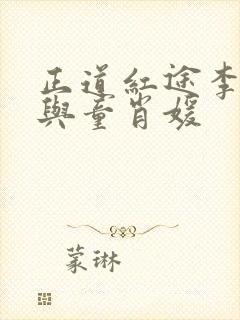 正道紅途李
與童肖媛
蒙琳